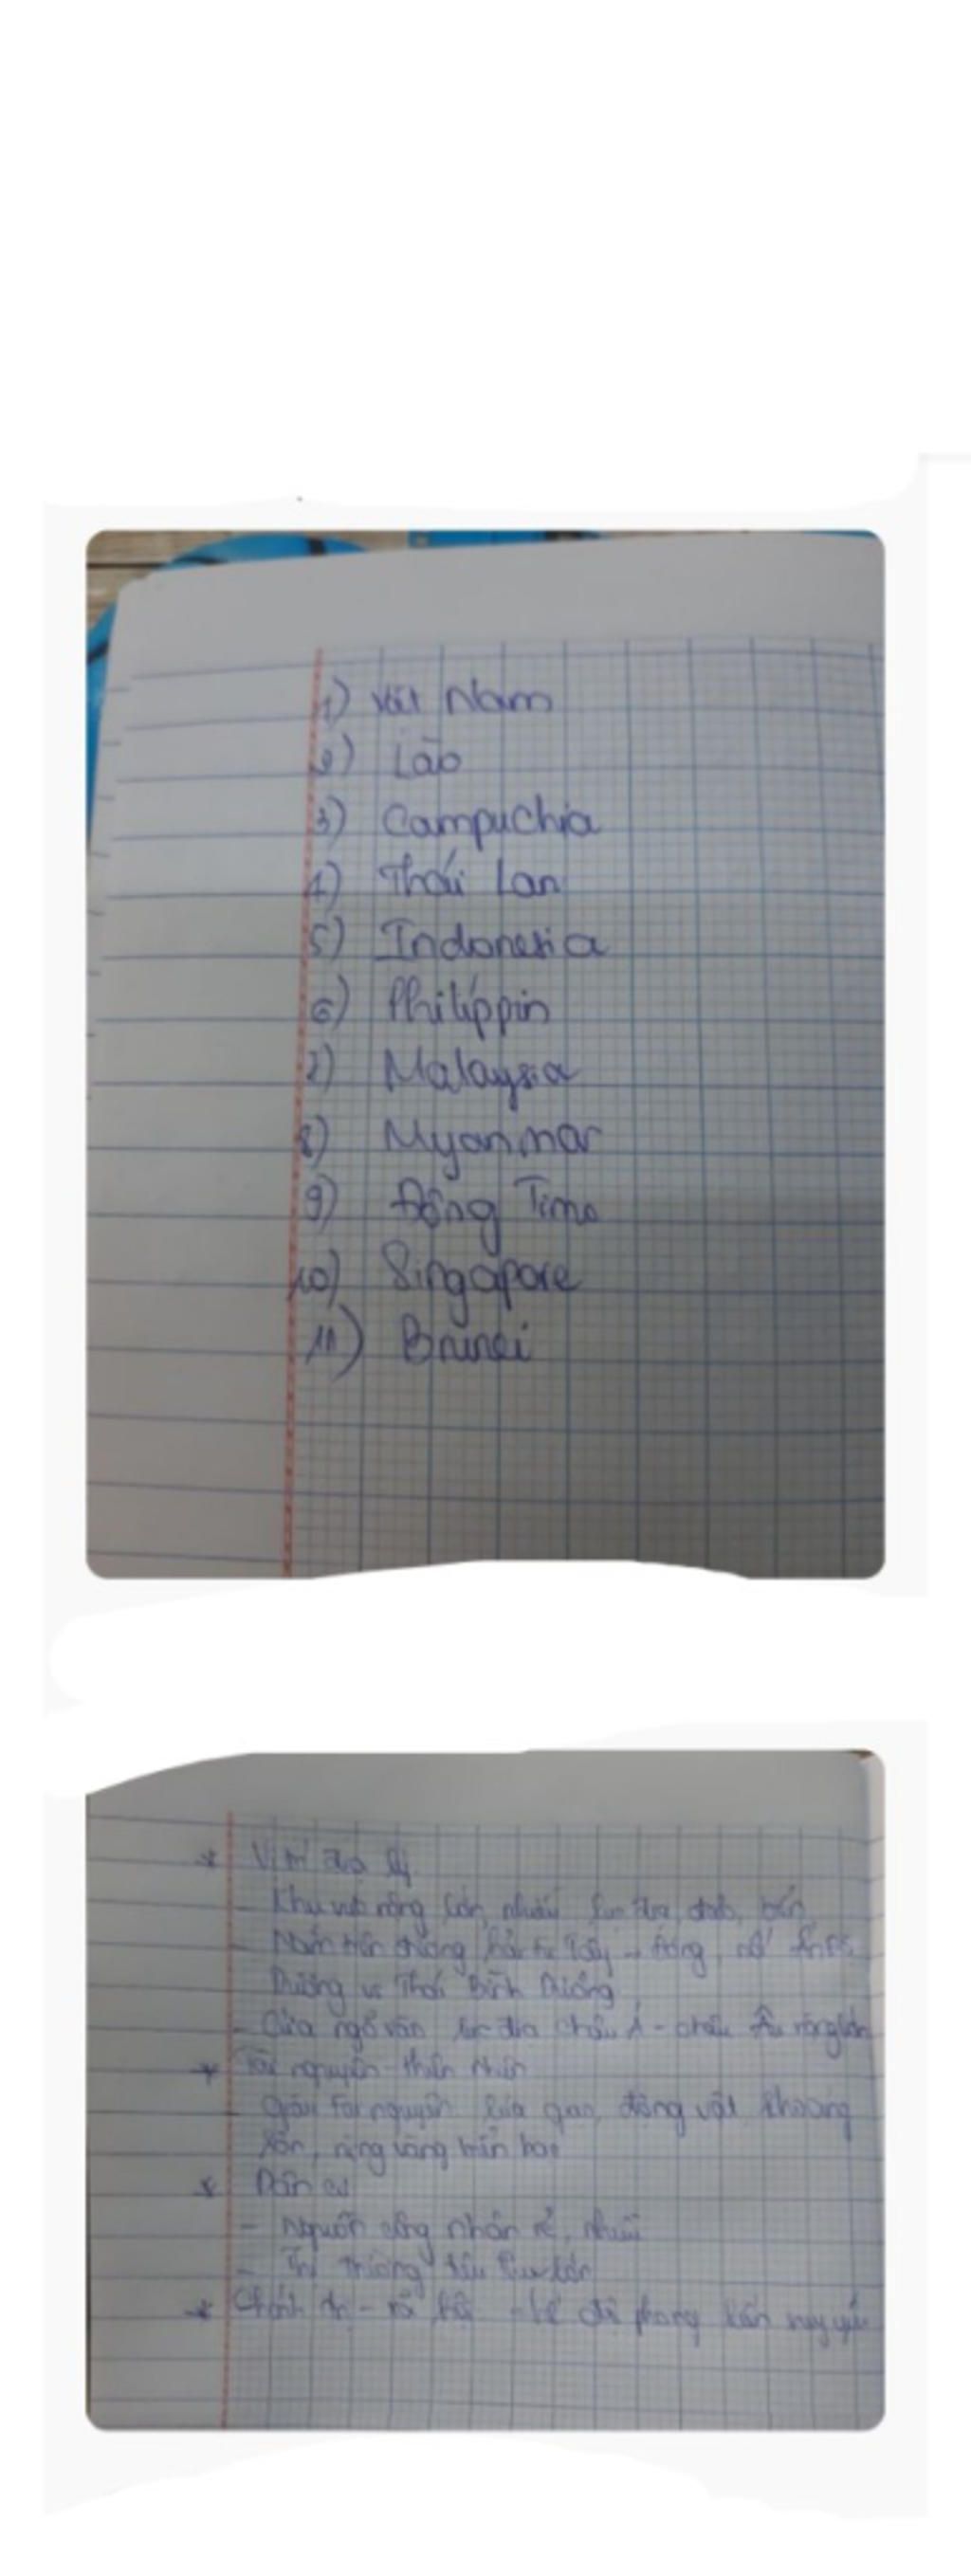 1) Việt Nam
2) Lào
3) Campuchia
4) Thái Lan
5) Indonesia
6) Philippin
7) Malaysia
8) Myanmar
9) Đông Timo
10) Singapore
11) Brunei
* Vị trí địa lý
- Khu vực rộng lớn, nhiều
- Nằm trên đường hải từ Tây - Đông, nối Ấn Độ
Dương vs Thái Bình Dương
- Cửa ngõ vào lục địa châu Á - châu Âu rộng lớn
* Tài nguyên thiên nhiên
- Giàu tài nguyên lúa gạo, động vật khoáng
sản
* Dân cư
- Nguồn công nhân rẻ, nhiều
- Thị trường tiêu thụ lớn
* Chính trị - xã hội - chế độ phong kiến suy yếu